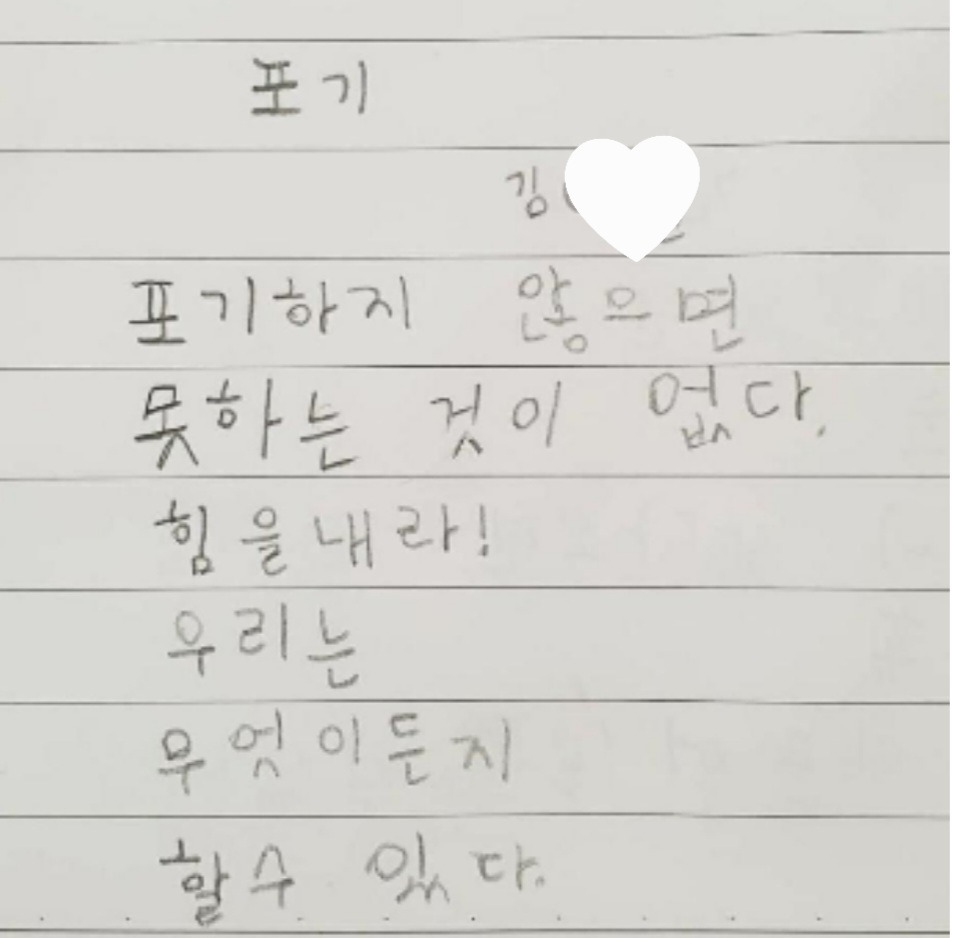 포기
김
포기하지 않으면
못하는 것이 없다.
힘을내라!
우리는
무엇이든지
할수 있다.